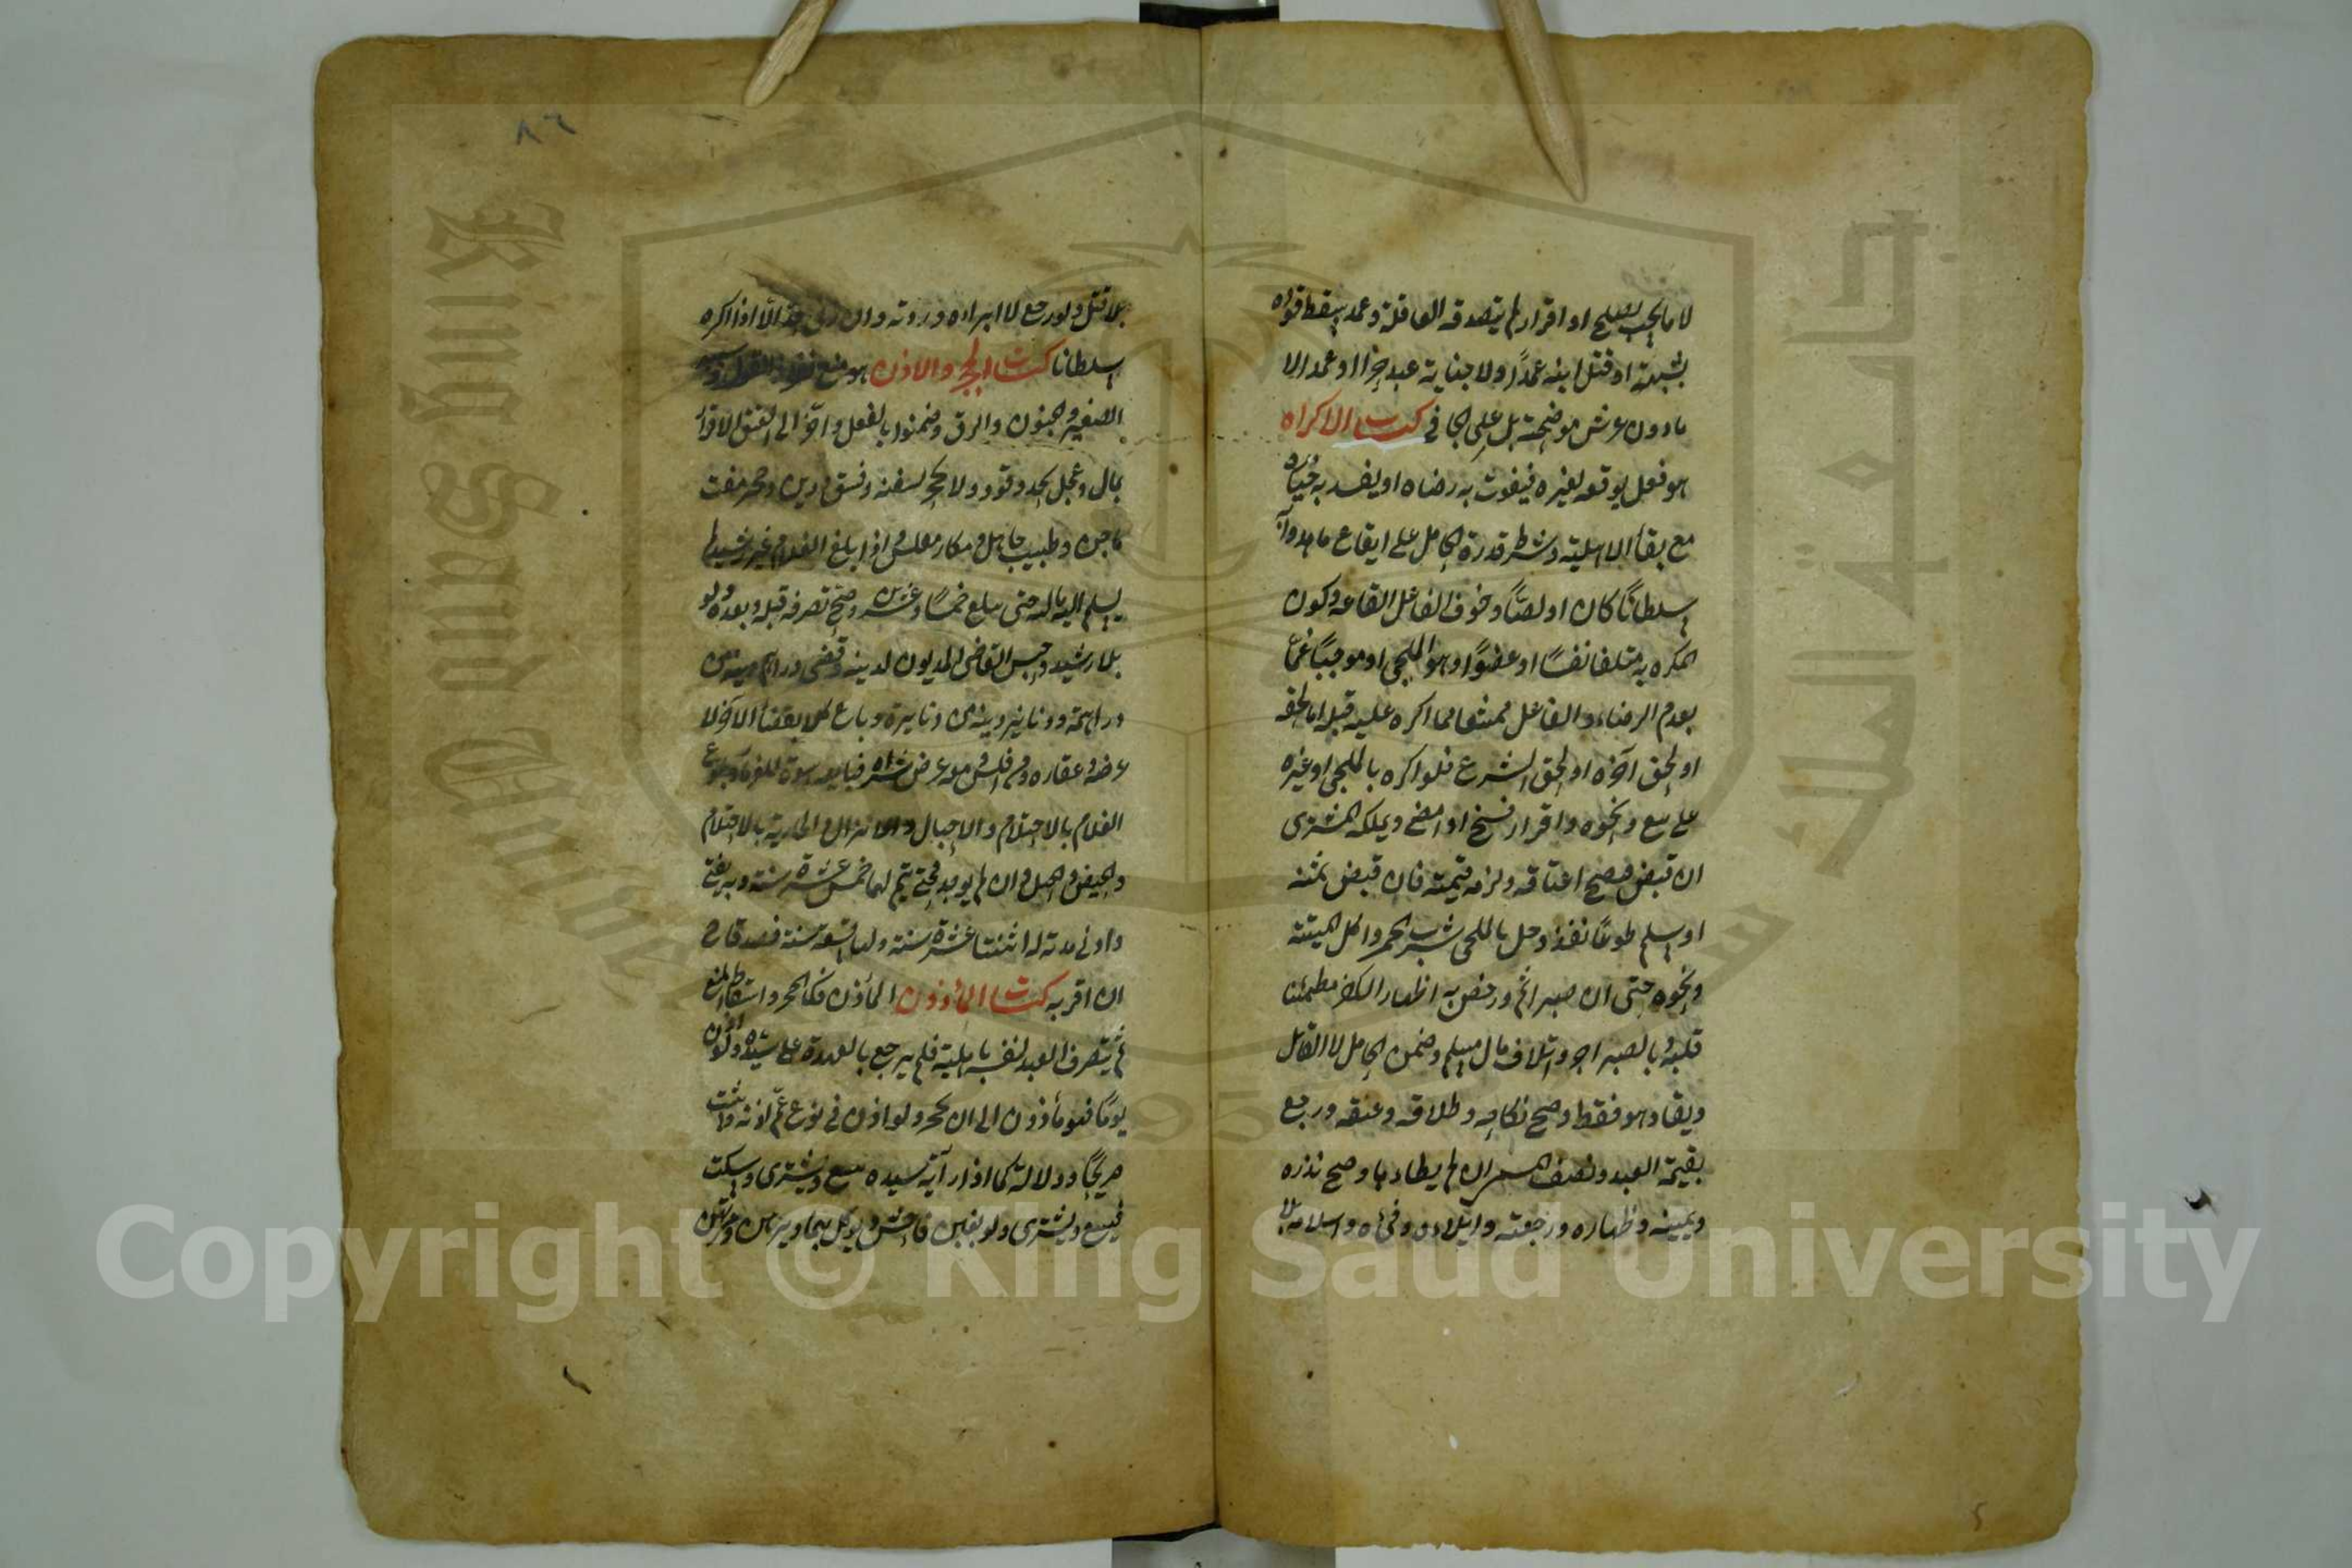 لا ما يجب بصلح او اقرار لم يتصدقه العاقلة وعمد يسقط قوده
بشبهة او قتل ابنه عمدًا ولا جناية عبد او عمد الا
ما دون عرش موضحة بل على الجاني كتاب الاكراه
هو فعل يوقعه لغيره فيفوت به رضاه او يفسد به اختياره
مع بقاء الاهلية وشرطه قدرة الحامل على ايقاع ما هدد به
سلطانًا كان او لصًّا وخوف الفاعل ايقاعه وكون
المكره به متلفا نفسًا او عضوًا وهو الملجى او موجبًا غمًا
بعدم الرضاء والفاعل ممتنعا مما اكره عليه قبله اما لحقه
او لحق آخره او لحق الشرع فلو اكره بالملجى او غيره
على بيع ونحوه واقرار فسخ او امضى ويملكه المشترى
ان قبض فصح اعتاقه ولزمه قيمته فان قبض ثمنه
او سلم طوعًا نفذ وحل بالملجى شرب الخمر واكل الميتة
ونحوه حتى ان صبر اثم ورخص به اظهار الكفر مطمئنا
قلبه وبالصبر اجر واتلاف مال مسلم وضمن الحامل لا الفاعل
ويقاد هو فقط وصح نكاحه وطلاقه وعتقه ورجع
بقيمة العبد ونصف المسمى ان لم يطاء ها وصح نذره
ويمينه وظهاره ورجعته وايلاءه وفيئه واسلامه بلا
بلا قتل ولو رجع لا ابراءه وردته وان زنى حد الا اذا اكره
سلطانا كتاب الحجر والاذن هو منع نفاذ القول وسببه
الصغر والجنون والرق وضمنوا بالفعل واخر الى العتق الاقرار
بمال وعجل بحد وقود ولا حجر لسفه وفسق ودين وحجر مفت
ماجن وطبيب جاهل ومكار مفلس واذا بلغ الغلام غير رشيد لم
يسلم اليه ماله حتى يبلغ خمسًا وعشرين وصح تصرفه قبله وبعده ولو
بلا رشيد وحبس القاضى المديون لدينه وقضى دراهم دينه من
دراهمه ودنانير دينه من دنانيره وباع لقضاء الاخر لا
عرضه وعقاره ومن افلس ومعه عرض شراه فبايعه اسوة للغرماء وبلوغ
الغلام بالاحتلام والاحبال والانزال والجارية بالاحتلام
والحيض والحبل وان لم يوجد فحتى يتم لهما خمس عشرة سنة وبه يفتى
وادنى مدته له اثنتا عشرة سنة ولها تسعة سنة فصدقا ح
ان اقر به كتاب المأذون الماذن فك الحجر واسقاط المنع
ثم يتصرف العبد لنفسه باهليته فلم يرجع بالعهدة على سيده ولو اذن
يومًا فهو مأذون الى ان يحجر ولو اذن في نوع عم اذنه ويثبت
صريحًا ودلالة كما اذا رآه سيده يبيع ويشترى وسكت
فيبيع ويشترى ولو بغبن فاحش ويوكل بهما ويرهن ويرتهن
٨٦
Copyright © King Saud University